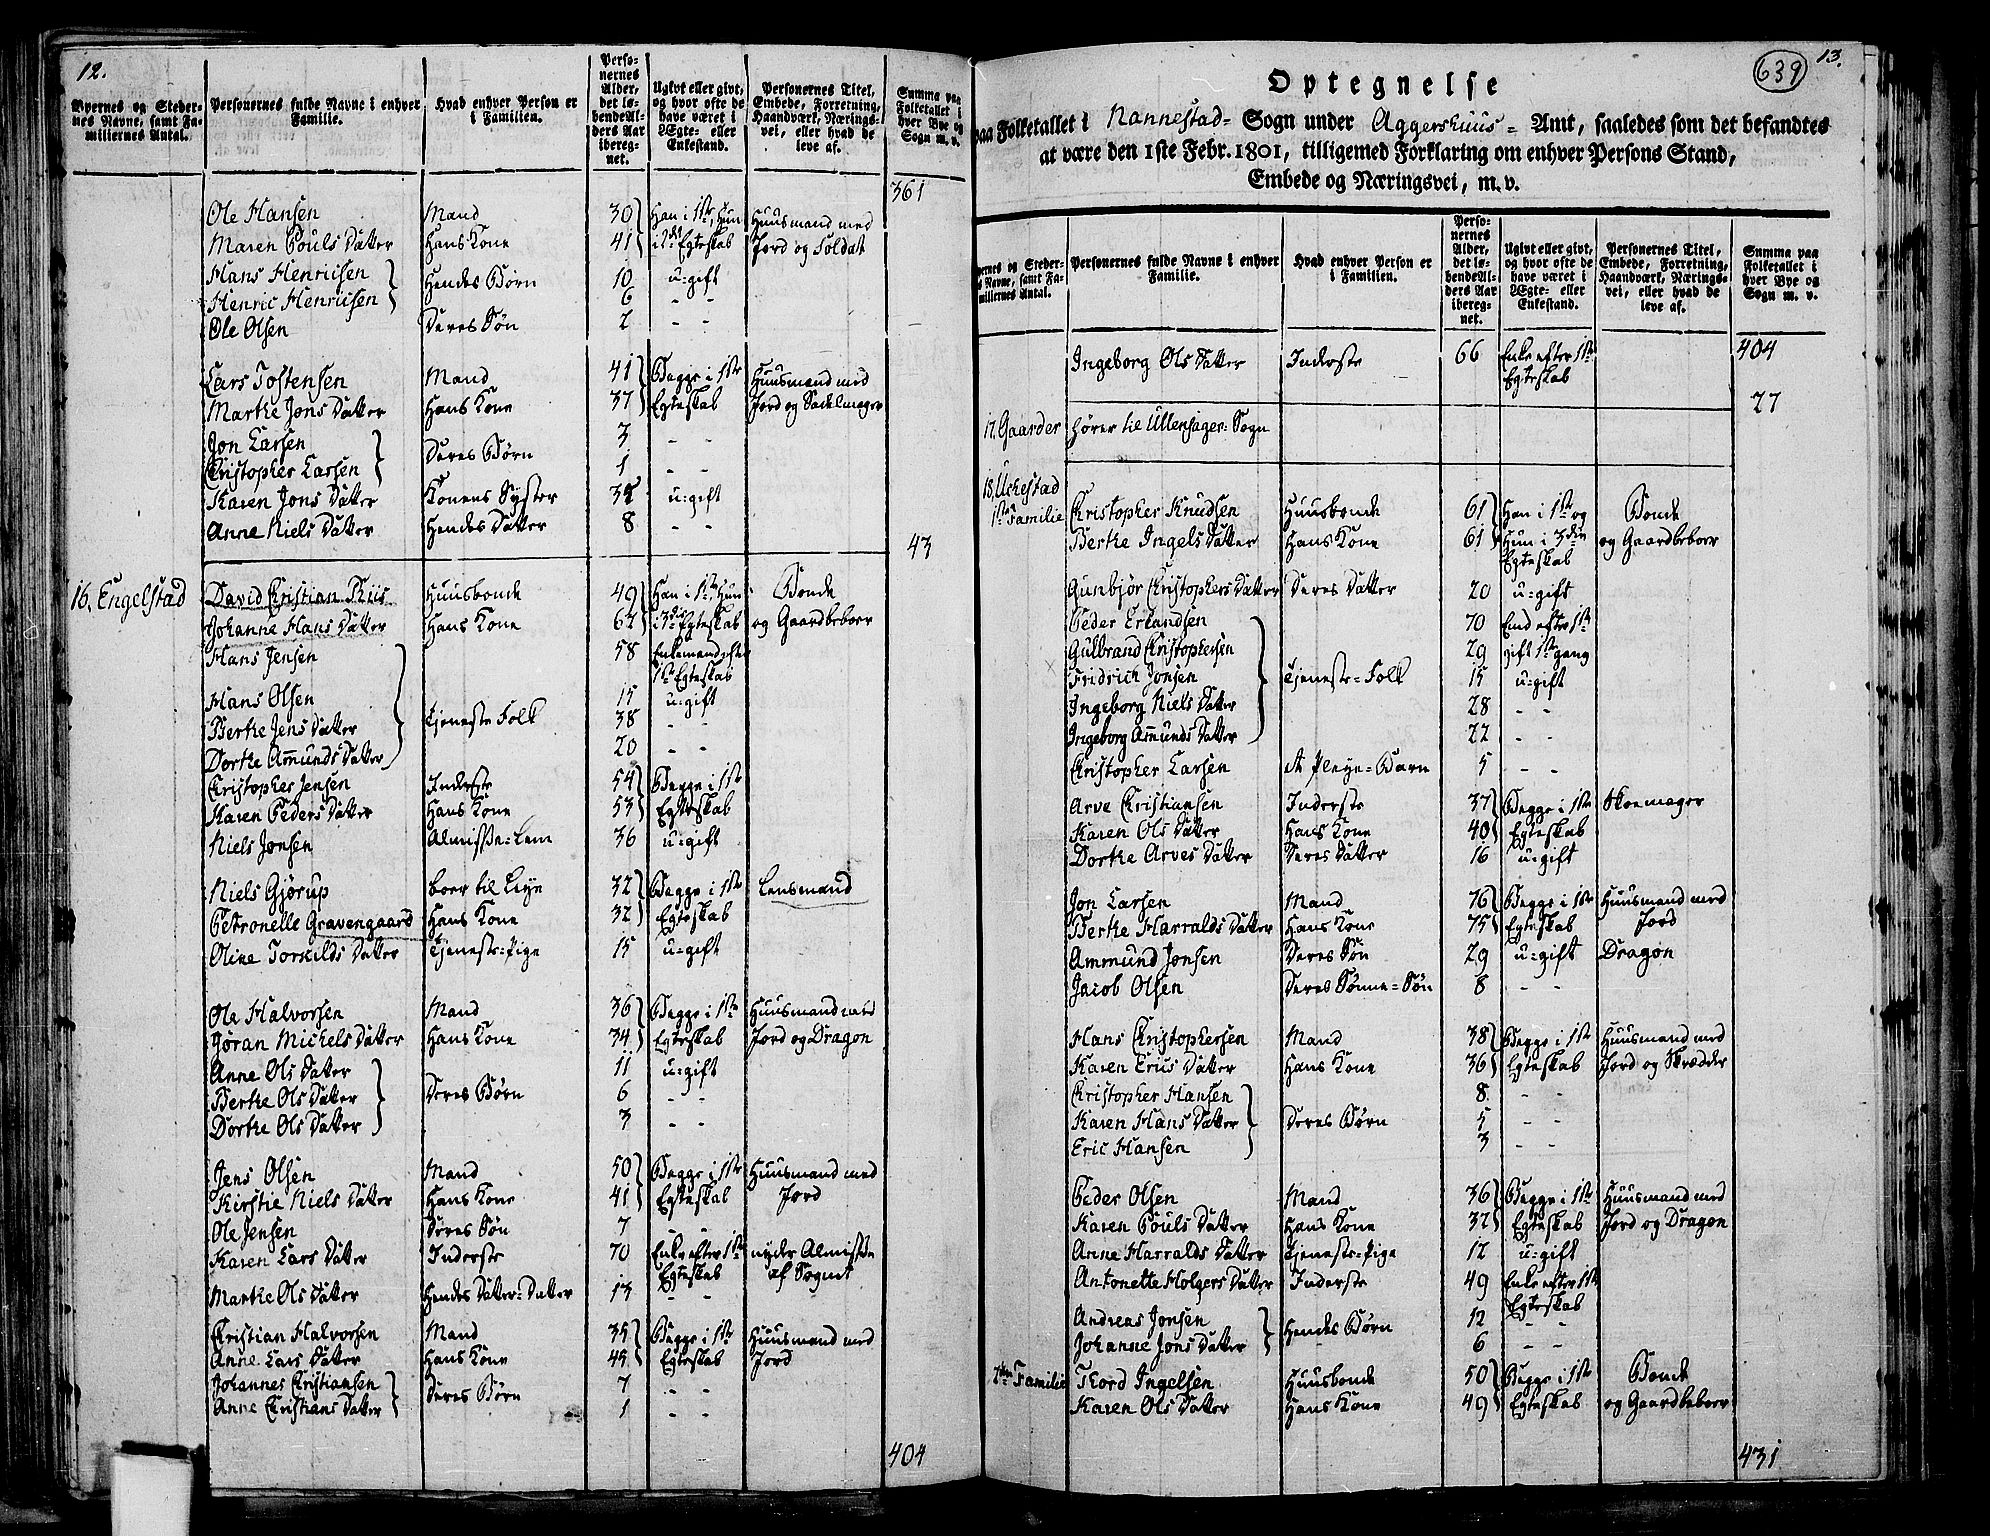 12.
Byernes og Steder-
nes Navne, samt Fa-
miliernes Antal.
Personernes fulde Navne i enhver
Familie.
Hvad enhver Person er
i Familien.
Perso-
nernes
Alder,
det lø-
bende Al-
ders Aar
ibereg-
net.
Ugivt eller givt,
og hvor ofte de
have været i
Ægte- eller
Enkestand.
Personernes Titel,
Embede, Forretning,
Haandværk, Nærings-
vei, eller hvad de
leve af.
Summa paa
Folketallet i
hver Bye og
Sogn m. v.
361
Ole Hansen Mand 30 Han i 1ste, Hun Huusmand med
Maren Pouls Datter Hans Kone 41 i 2det Egteskab Jord og Soldat
Hans Henricsen Hendes Børn 10 u=gift
Henric Henricsen 6 - -
Ole Olsen Deres Søn 2 - -
Lars Tostensen Mand 41 Begge i 1ste Huusmand med
Marthe Jons Datter Hans Kone 37 Egteskab Jord og Sadelmager
Jon Larsen Deres Børn 3 - -
Christopher Larsen 1 - -
Karen Jons Datter Konens Syster u=gift
Anne Niels Datter Hendes Datter 8 - -
43
16, Engelstad David Christian Thiis Huusbonde 49 Han i 1ste, Hun Bonde
Johanne Hans Datter Hans Kone 62 i 3die Egteskab og Gaardbeboer
Hans Jensen 58 Enkemand efter
1ste Egteskab
Hans Olsen 15 u=gift
Berthe Jens Datter Tjeneste Folk 38 - -
Dorthe Amunds Datter 20 - -
Christopher Jensen Inderste 54 Begge i 1ste
Karen Peders Datter Hans Kone 53 Egteskab
Niels Jonsen Almisse=Lem 36 u=gift
Niels Gjørup boer til Leye 32 Begge i 1ste Lensmand
Petronelle Gravengaard Hans Kone 32 Egteskab
Oline Torkilds Datter Tjeneste=Pige 15 u=gift
Ole Halvorsen Mand 36 Begge i 1ste Huusmand med
Jøran Michels Datter Hans Kone 34 Egteskab Jord og Dragon
Anne Ols Datter 11 u=gift
Berthe Ols Datter Deres Børn 6 - -
Dorthe Ols Datter 3 - -
Jens Olsen Mand 50 Begge i 1ste Huusmand med
Kirstie Niels Datter Hans Kone 41 Egteskab Jord
Ole Jensen Deres Søn 7 -
Karen Lars Datter Inderste 70 Enke efter 1ste nyder Almisse
Egteskab af Sognet
Marthe Ols Datter Hendes Datter=Datter 13 - -
Christian Halvorsen Mand 35 Begge i 1ste Huusmand med
Anne Lars Datter Hans Kone 45 Egteskab Jord
Johannes Christiansen Deres Børn 7 - -
Anne Christians Datter 1 - -
404
13.
639
Optegnelse
paa Folketallet i Nannestad= Sogn under Aggershuus= Amt, saaledes som det befandtes
at være den 1ste Febr. 1801, tilligemed Forklaring om enhver Persons Stand,
Embede og Næringsvei, m. v.
Byernes og Steder-
nes Navne, samt Fa-
miliernes Antal.
Personernes fulde Navne i enhver
Familie.
Hvad enhver Person er
i Familien.
Perso-
nernes
Alder,
det lø-
bende Al-
ders Aar
ibereg-
net.
Ugivt eller givt,
og hvor ofte de
have været i
Ægte- eller
Enkestand.
Personernes Titel,
Embede, Forretning,
Haandværk, Nærings-
vei, eller hvad de
leve af.
Summa paa
Folketallet i
hver Bye og
Sogn m. v.
Ingeborg Ols Datter Inderste 66 Enke efter 1ste 404
Egteskab
27
17, Gaarder hører til Ullensager= Sogn
18, Uckestad
1ste Familie Christopher Knudsen Huusbonde 61 Han i 1ste og Bonde
Berthe Ingels Datter Hans Kone 61 Hun i 3die og Gaardbeboer
Egteskab
Gunbjør Christophers Datter Deres Datter 20 u=gift
Peder Erlandsen 70 Enk efter 1ste
Gulbrand Christophersen 29 gift 1ste gang
Fridrich Jonsen Tjeneste=Folk 15 u=gift
Ingeborg Niels Datter 28 - -
Ingeborg Amunds Datter 22 - -
Christopher Larsen et Pleye=Barn 5 - -
Arve Christiansen Inderste 37 Begge i 1ste Skoemager
Karen Ols Datter Hans Kone 40 Egteskab
Dorthe Arves Datter Deres Datter 16 u=gift
Jon Larsen Mand 76 Begge i 1ste Huusmand med
Berthe Harralds Datter Hans Kone 75 Egteskab Jord
Ammund Jonsen Deres Søn 29 u=gift Dragon
Jacob Olsen Deres Sønne=Søn 8 - -
Hans Christophersen Mand 38 Begge i 1ste Huusmand med
Karen Erics Datter Hans Kone 36 Egteskab Jord og Skrædder
Christopher Hansen 8 - -
Karen Hans Datter Deres Børn 5 - -
Eric Hansen 3 - -
Peder Olsen Mand 36 Begge i 1ste Huusmand med
Karen Pouls Datter Hans Kone 32 Egteskab Jord og Dragon
Anne Harralds Datter Tjeneste=Pige 12 u=gift
Antonette Holgers Datter Inderste 49 Enke efter 1ste
Egteskab
Andreas Jonsen Hendes Børn 12 - -
Johanne Jons Datter 6 - -
2den Familie Thord Ingelsen Huusbonde 50 Begge i 1ste Bonde
Karen Ols Datter Hans Kone 49 Egteskab og Gaardbeboer
431